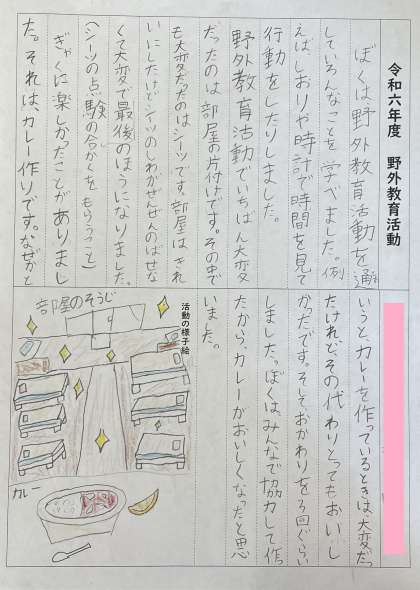 令和六年度　野外教育活動
ぼくは野外教育活動を通
していろんなことを学べました。例
えばしおりや時計で時間を見て
行動をしたりしました。
野外教育活動でいちばん大変
だったのは部屋の片付けです。その中で
も大変だったのはシーツです。部屋はきれ
いにしたけどシーツのしわがぜんぜんのばせな
くて大変で最後のほうになりました。
(シーツの点験の合かくをもらうこと)
ぎゃくに楽しかったことがありまし
た。それは、カレー作りです。なぜかと
いうと、カレーを作っているときは、大変だっ
たけれどその代わりとってもおいし
かったです。そしておかわりを3回ぐらい
しました。ぼくは、みんなで協力して作っ
たから、カレーがおいしくなったと思
いました。
活動の様子絵
部屋のそうじ
カレー